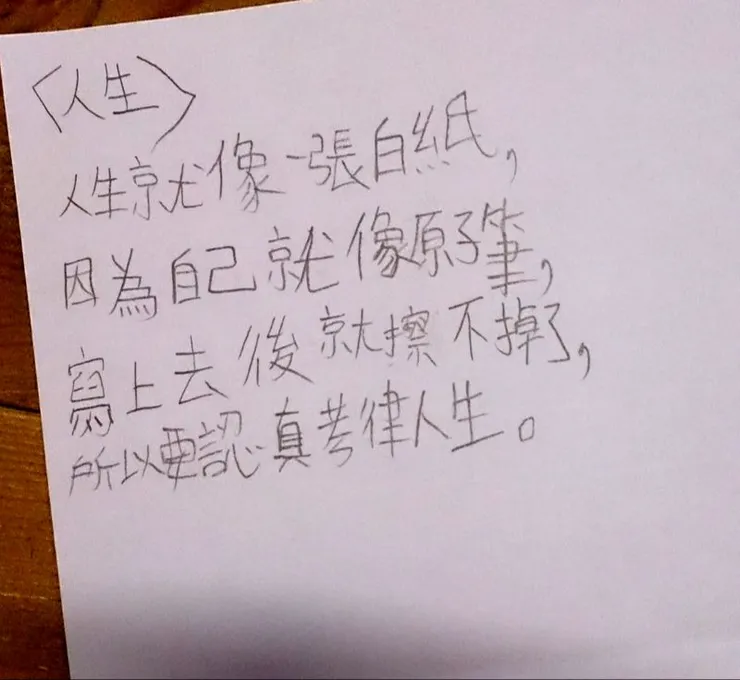 〈人生〉
人生就像一張白紙，
因為自己就像原子筆，
寫上去後就擦不掉了，
所以要認真考律人生。